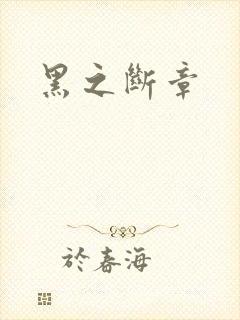 黑之斷章
於春海